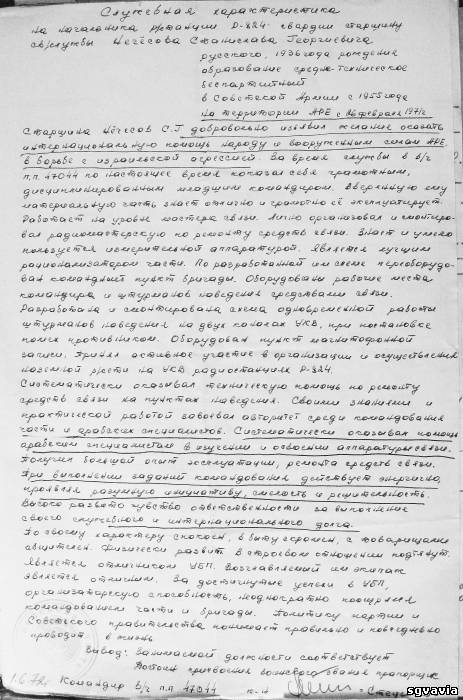 Служебная характеристика
на начальника р/станции Р-824 гвардии старшину
св/службы Нечёсова Станислава Георгиевича
русского, 1936 года рождения
образование средне-техническое
беспартийный
в Советской Армии с 1955 года
на территории АРЕ с 26 февраля 1971г.
Старшина Нечесов С.Г. добровольно изъявил желание оказать
интернациональную помощь народу и вооруженным силам АРЕ
в борьбе с израильской агрессией. За время службы в в/ч
п.п. 47044 по настоящее время показал себя грамотным,
дисциплинированным младшим командиром. Вверенную ему
материальную часть знает отлично и грамотно её эксплуатирует.
Работает на уровне мастера связи. Лично организовал и смонтиро-
вал радиомастерскую по ремонту средств связи. Знает и умело
пользуется измерительной аппаратурой. Является лучшим
рационализатором части. По разработанной им схеме переоборудо-
ван командный пункт бригады. Оборудованы рабочие места
командира и штурманов наведения средствами связи.
Разработана и смонтирована схема одновременной работы
штурманов наведения на двух каналах УКВ, при постановке
помех противником. Оборудован пункт магнитофонной
записи. Принял активное участие в организации и осуществлении
наземной р/сети на УКВ радиостанциях Р-824.
Систематически оказывал техническую помощь по ремонту
средств связи на пунктах наведения. Своими знаниями и
практической работой завоевал авторитет среди командования
части и арабских специалистов. Систематически оказывал помощь
арабским специалистам в изучении и освоении аппаратуры связи.
Получил большой опыт эксплуатации, ремонта средств связи.
При выполнении заданий командования действует энергично,
проявляя разумную инициативу, смелость и решительность.
Высоко развито чувство ответственности за выполнение
своего служебного и интернационального долга.
По своему характеру спокоен, в быту скромен, с товарищами
общителен. Физически развит. В строевом отношении подтянут.
Является отличником УБП. Возглавляемый им экипаж
является отличным. За достигнутые успехи в УБП,
организаторскую способность, неоднократно поощрялся
командованием части и бригады. Политику партии и
Советского правительства понимает правильно и повседневно
проводит в жизнь
Вывод: Занимаемой должности соответствует
Достоин присвоения воинского звания прапорщик
1.6.72г. Командир в/ч п.п. 47044
sgvavia